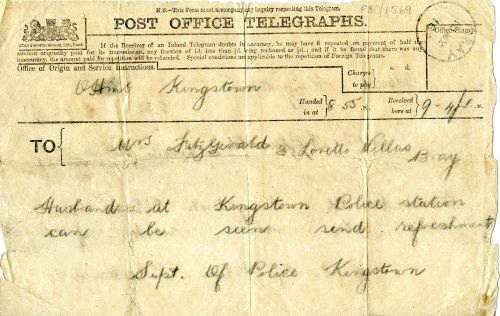 N.B.—This Form must accompany any inquiry respecting this Telegram.
POST OFFICE TELEGRAPHS.
If the Receiver of an Inland Telegram doubts its accuracy, he may have it repeated on payment of half the amount originally paid for its transmission, any fraction of 1d. less than ½d. being reckoned as ½d.; and if it be found that there was any inaccuracy, the amount paid for repetition will be refunded. Special conditions are applicable to the repetition of Foreign Telegrams.
Office Stamp.
Office of Origin and Service Instructions.
Charges to pay
s. d.
OHMS Kingstown
Handed in at
8-55
Received here at
TO
Mrs FitzGerald 3 Loretto Villas
Bray
Husband at Kingstown Police station
can be seen send refreshment
Supt. Of Police Kingstown